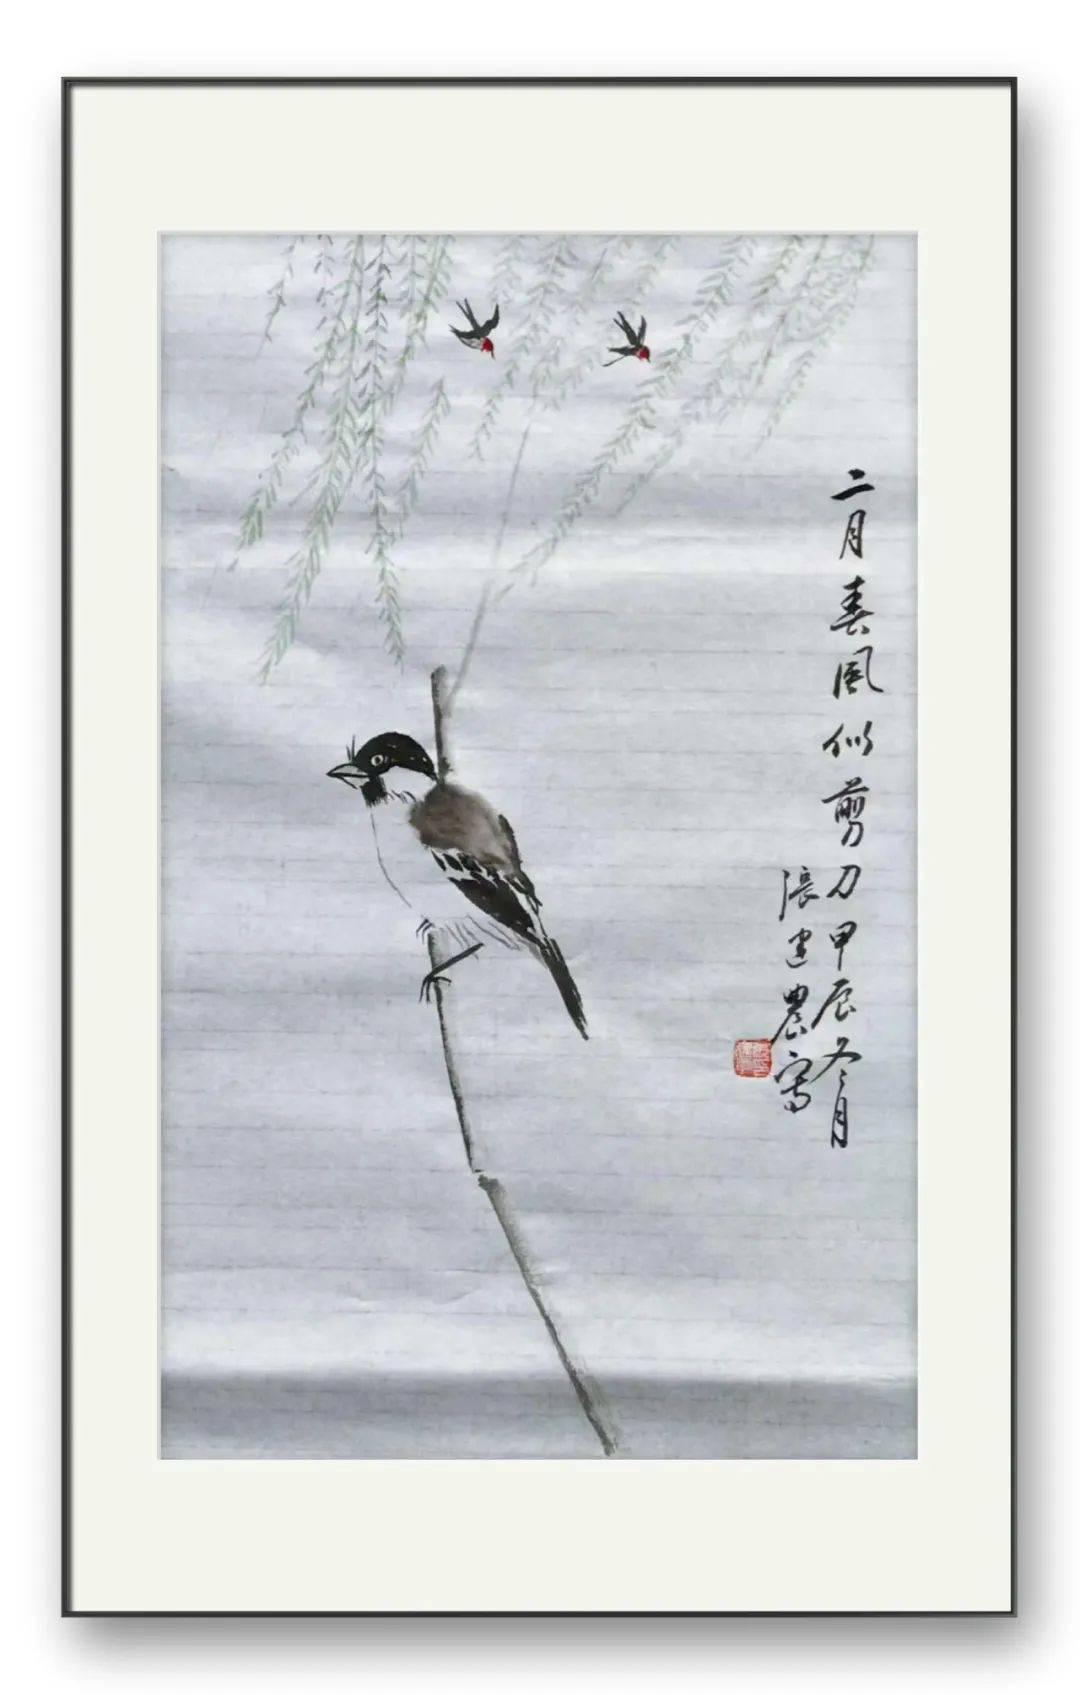 二月春风似剪刀甲辰冬月
張建農寫